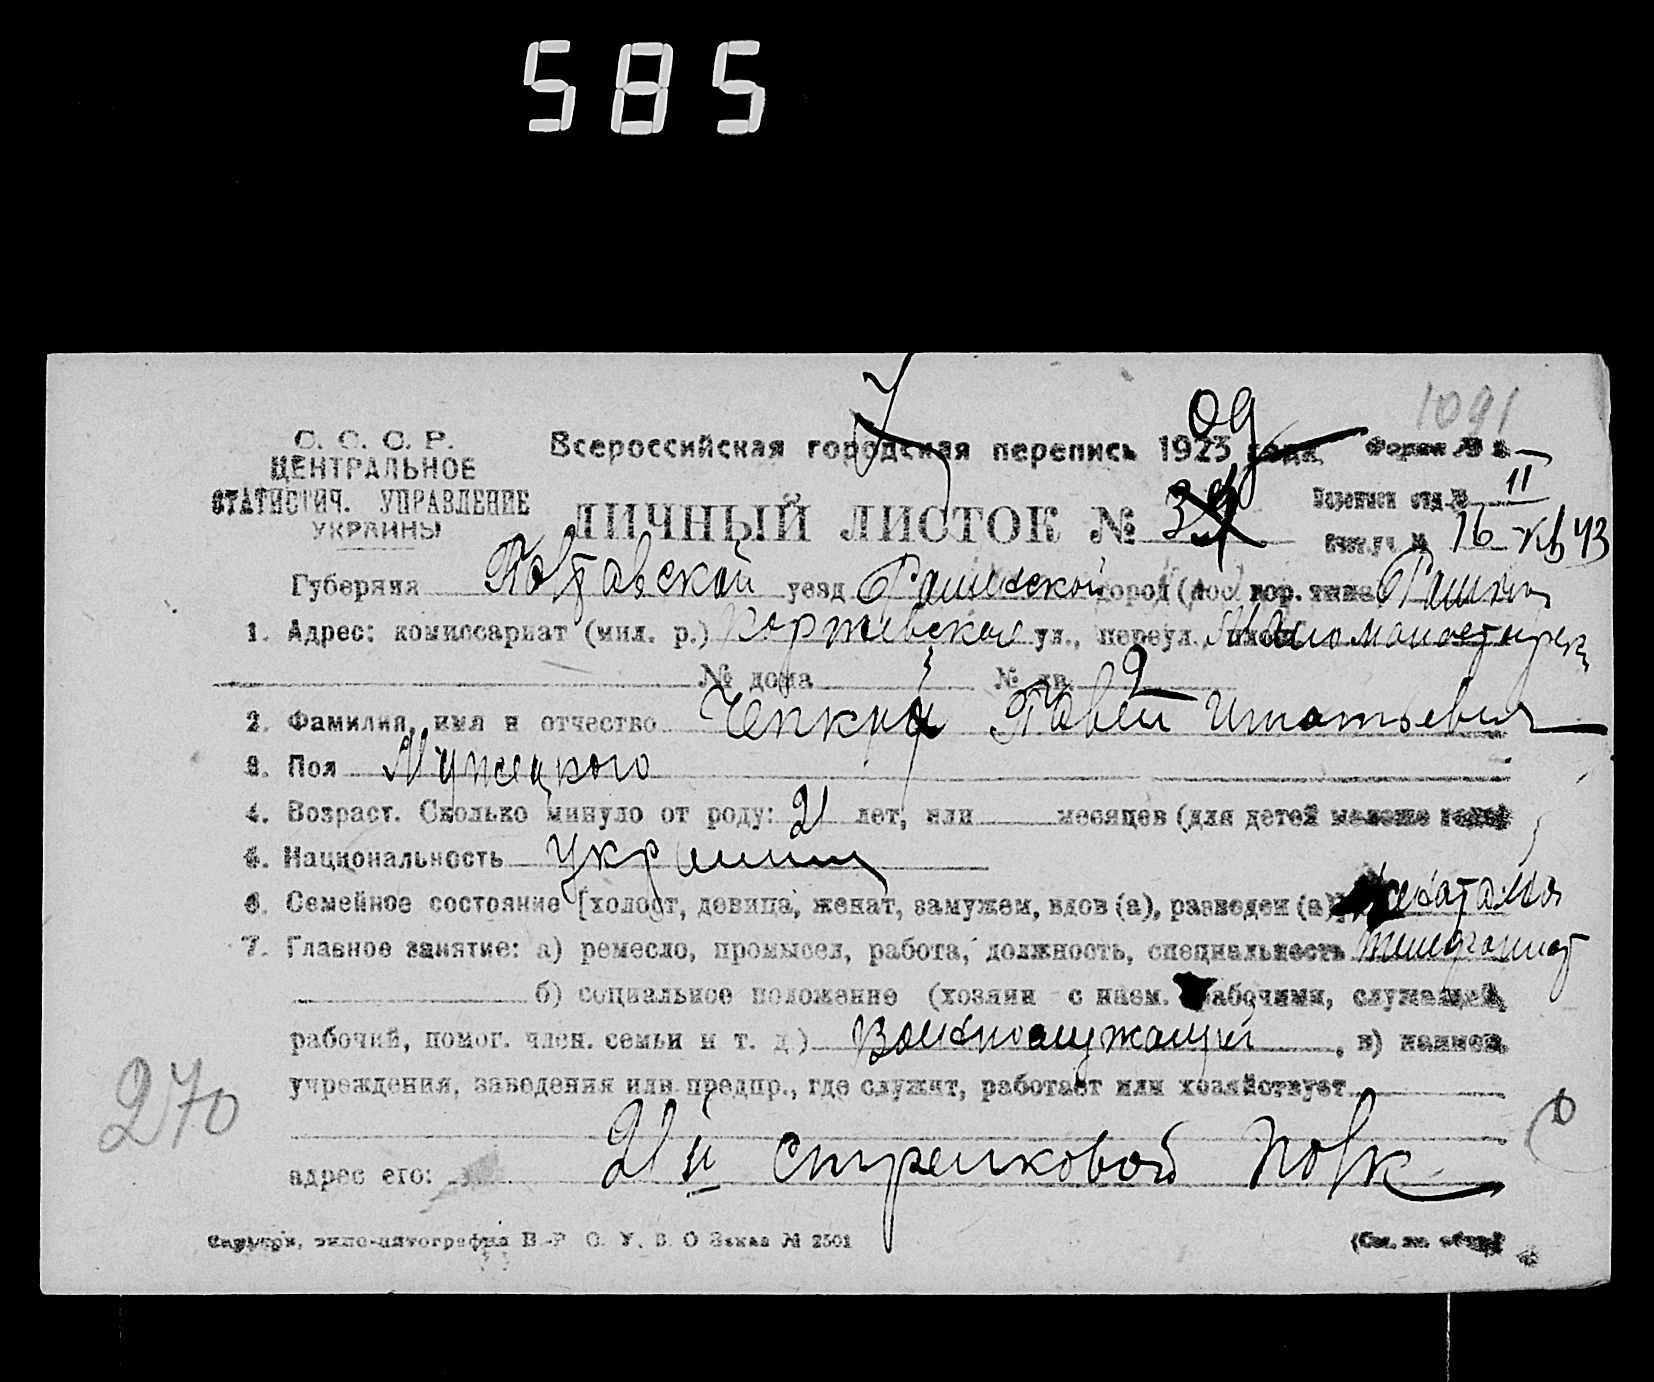 585
1091
С. С. С. Р.
ЦЕНТРАЛЬНОЕ
СТАТИСТИЧ. УПРАВЛЕНИЕ
УКРАИНЫ
09
Всероссийская городская перепись 1923 года Форма №
ЛИЧНЫЙ ЛИСТОК №
Переписн отд. № 11
Счет. уч. № 16 кв 43
Губерния Полтавской уезд город (пос) гор. типа
1. Адрес: комиссариат (мил. р.) ул., переул.,
№ дома № кв. 9
2. Фамилия, имя и отчество Павел Игнатьевич
3. Пол Мужецкого
4. Возраст. Сколько минуло от роду: 21 лет, или месяцев (для детей моложе года)
5. Национальность Украинец
6. Семейное состояние [холост, девица, женат, замужем, вдов (а), разведен (а)]
7. Главное занятие: а) ремесло, промысел, работа, должность, специальность телефонист
б) социальное положение (хозяин с наем. рабочими, служащий,
рабочий, помог. член. семьи и т. д.) Военнослужащий, в) наимен.
учреждения, заведения или предпр., где служит, работает или хозяйствует
адрес его: 21й стрелковой полк
270
Заказ № 2501
(См. на обор.)